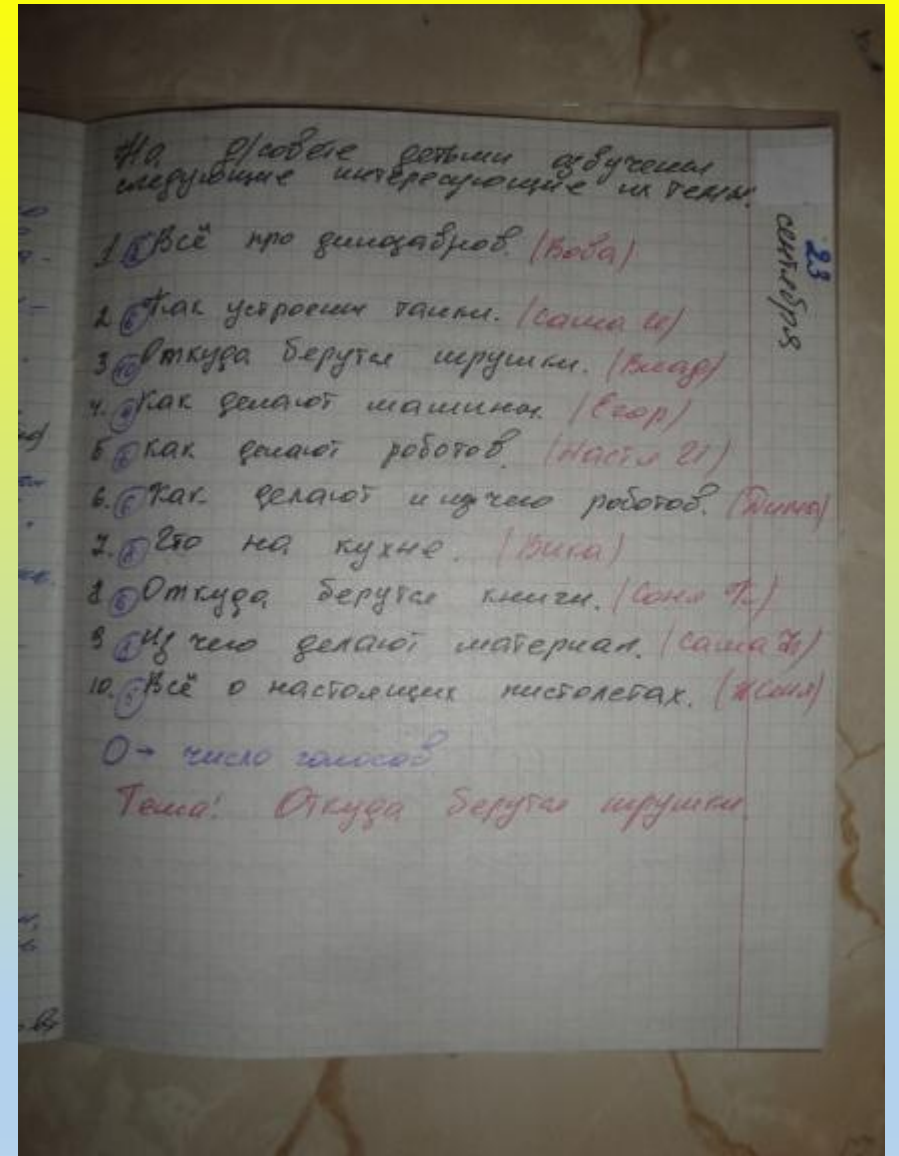 На д/совете детьми озвучены
следующие интересующие их темы.
23 сентября
1 Всё про динозавров. (Вова)
2 Как устроены танки. (Саша И)
3 10 Откуда берутся игрушки. (Влад)
4. Как делают машины. (Егор)
5 Как делают роботов. (Настя И)
6. Как делают и из чего роботов. (Дима)
7. Что на кухне. (Вика)
8 Откуда берутся книги. (Соня К)
9 Из чего делают материал. (Саша)
10. Всё о настоящих пистолетах. (Женя)
О → число голосов
Тема: Откуда берутся игрушки.